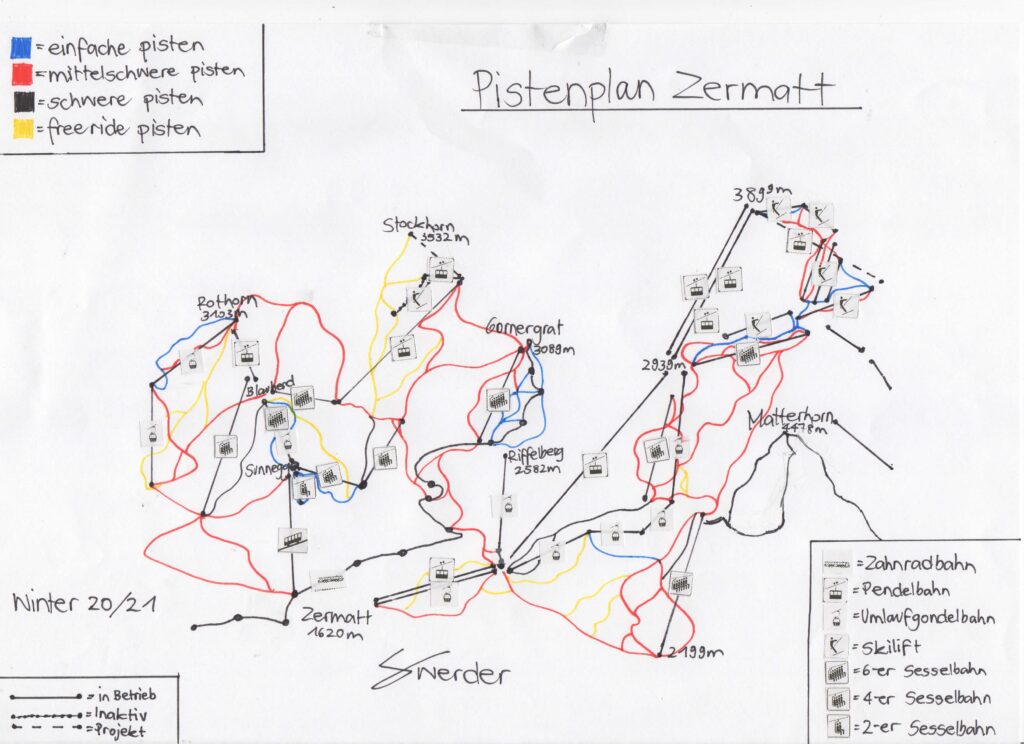 = einfache pisten
= mittelschwere pisten
= schwere pisten
= freeride pisten
Pistenplan Zermatt
3899m
Stockhorn
3532m
Rothorn
3103m
Gornergrat
3089m
Blauherd
2939m
Matterhorn
4478m
Sunnegga
Riffelberg
2582m
Winter 20/21
Zermatt
1620m
2199m
Swerder
= in Betrieb
= Inaktiv
= Projekt
= Zahnradbahn
= Pendelbahn
= Umlaufgondelbahn
= Skilift
= 6-er Sesselbahn
= 4-er Sesselbahn
= 2-er Sesselbahn